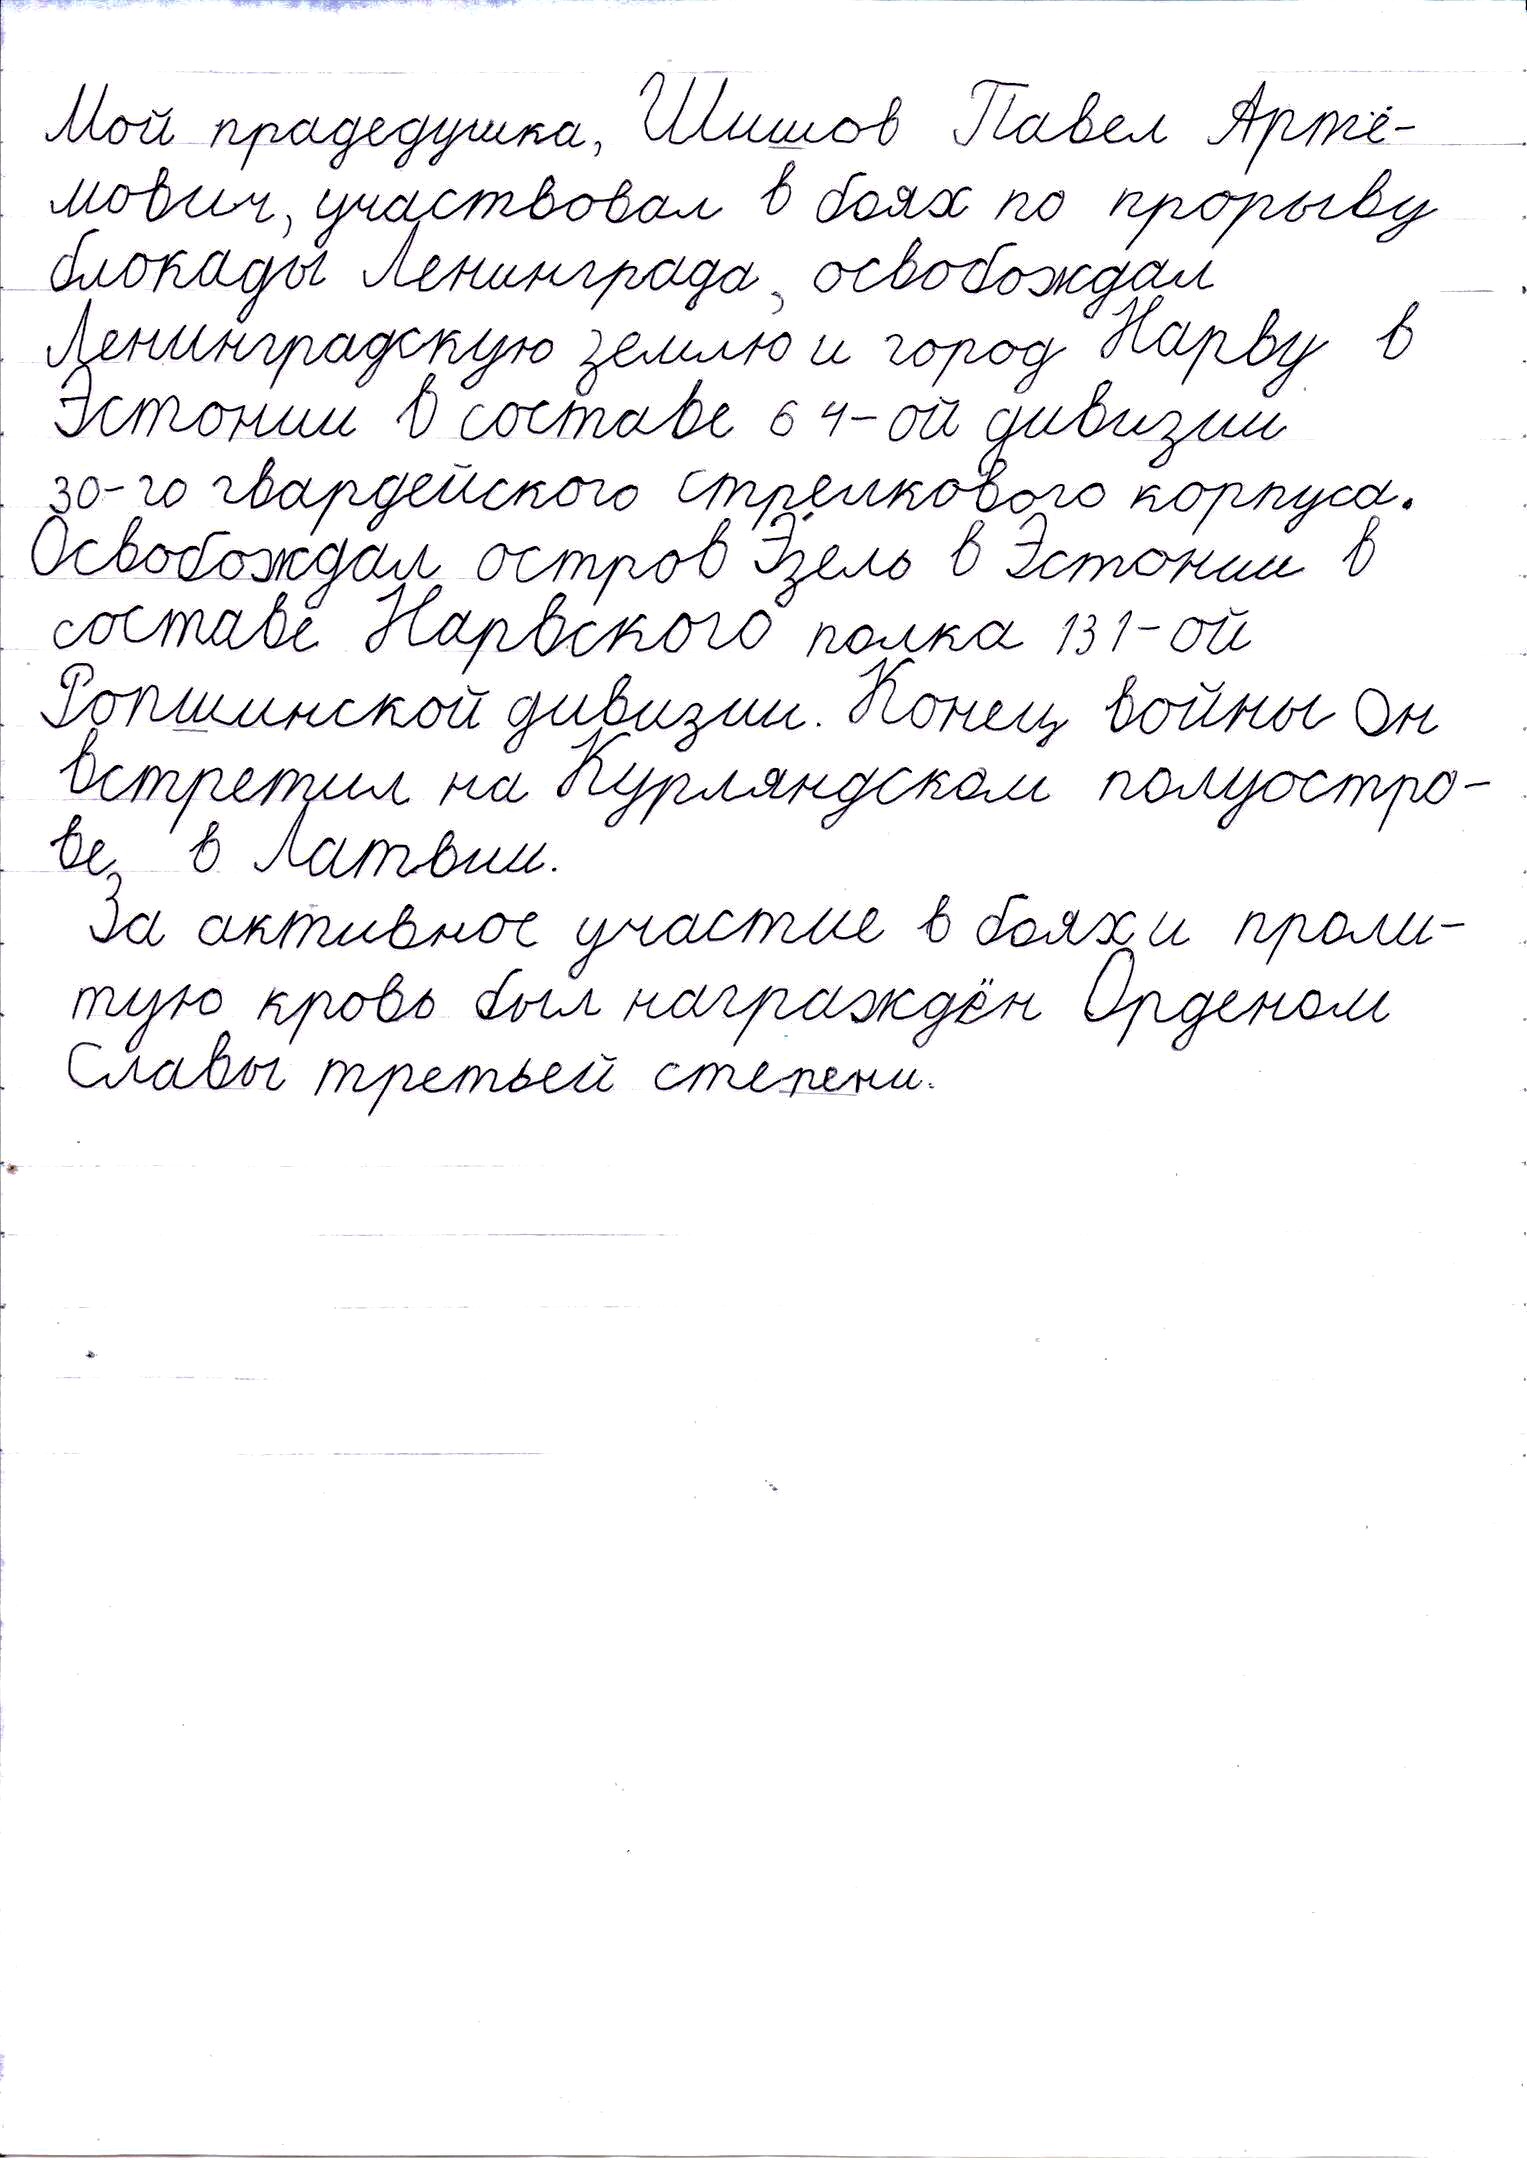 Мой прадедушка, Шишов Павел Артё-
мович, участвовал в боях по прорыву
блокады Ленинграда, освобождал
Ленинградскую землю и город Нарву в
Эстонии в составе 64-ой дивизии
30-го гвардейского стрелкового корпуса.
Освобождал остров Эзель в Эстонии в
составе Нарвского полка 131-ой
Ропшинской дивизии. Конец войны он
встретил на Курляндском полуостро-
ве в Латвии.
За активное участие в боях и проли-
тую кровь был награждён Орденом
Славы третьей степени.